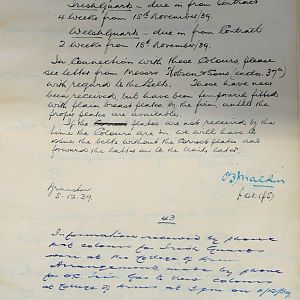 Irish Guards — due in from Contract
4 weeks from 15th November/39.
Welsh Guards — due in from Contract
2 weeks from 15th November/39.
In Connection with these Colours, please
see letter from Messrs Hobson & Sons, encl. 37A
with regard to the belts. These have now
been received, but have been temporarily fitted
with plain breast plates, by the firm, until the
proper plates are available.
If the plates are not received by the
time the Colours are in, we will have to
issue the belts without the correct plates and
forward the latter on to the Units later.
5.12.39.
43
Information received by phone
that colours for Irish Guards
were at the College of Arms
Arrangements made by phone
for to view colours
at College of Arms at 3 pm on